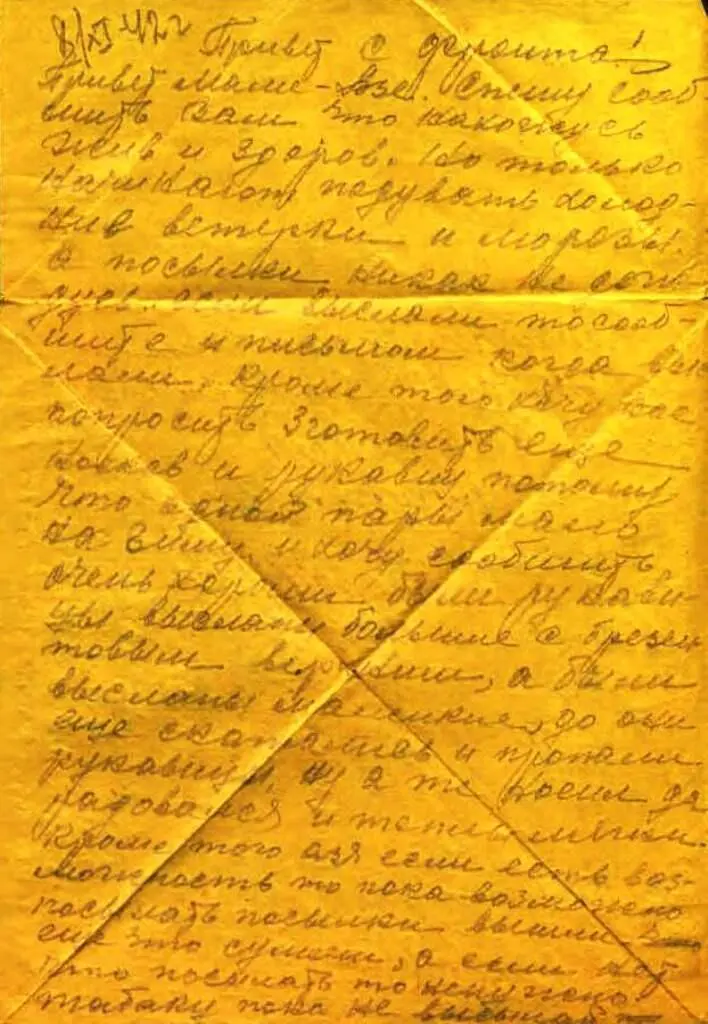 8/XI 42 г
Привет с фронта!
Привет маме - Азе. Спешу сооб
щить Вам что нахожусь
жив и здоров. Но только
начинают подувать холод-
ние ветерки и морозы.
а посылки никак не
если выслали то сооб-
щите и письмом когда выс
лали. Кроме того хочу вас
попросить зготовить еще
носков и рукавиц потому
что одной пары мало
на зиму, и хочу сообщить
очень хороши были рукави-
цы выслали большие с брезен
товым верхним, а были
высланы маленькие, до они
еще скатались и пропали
рукавицы, ну а те носил да
радовался и теплые мягки.
Кроме того Азя если есть воз-
можность то пока возможно
посылать посылки вышли
еще что сумеешь, а если нет
что посылать то не нужно
табаку пока не высылай